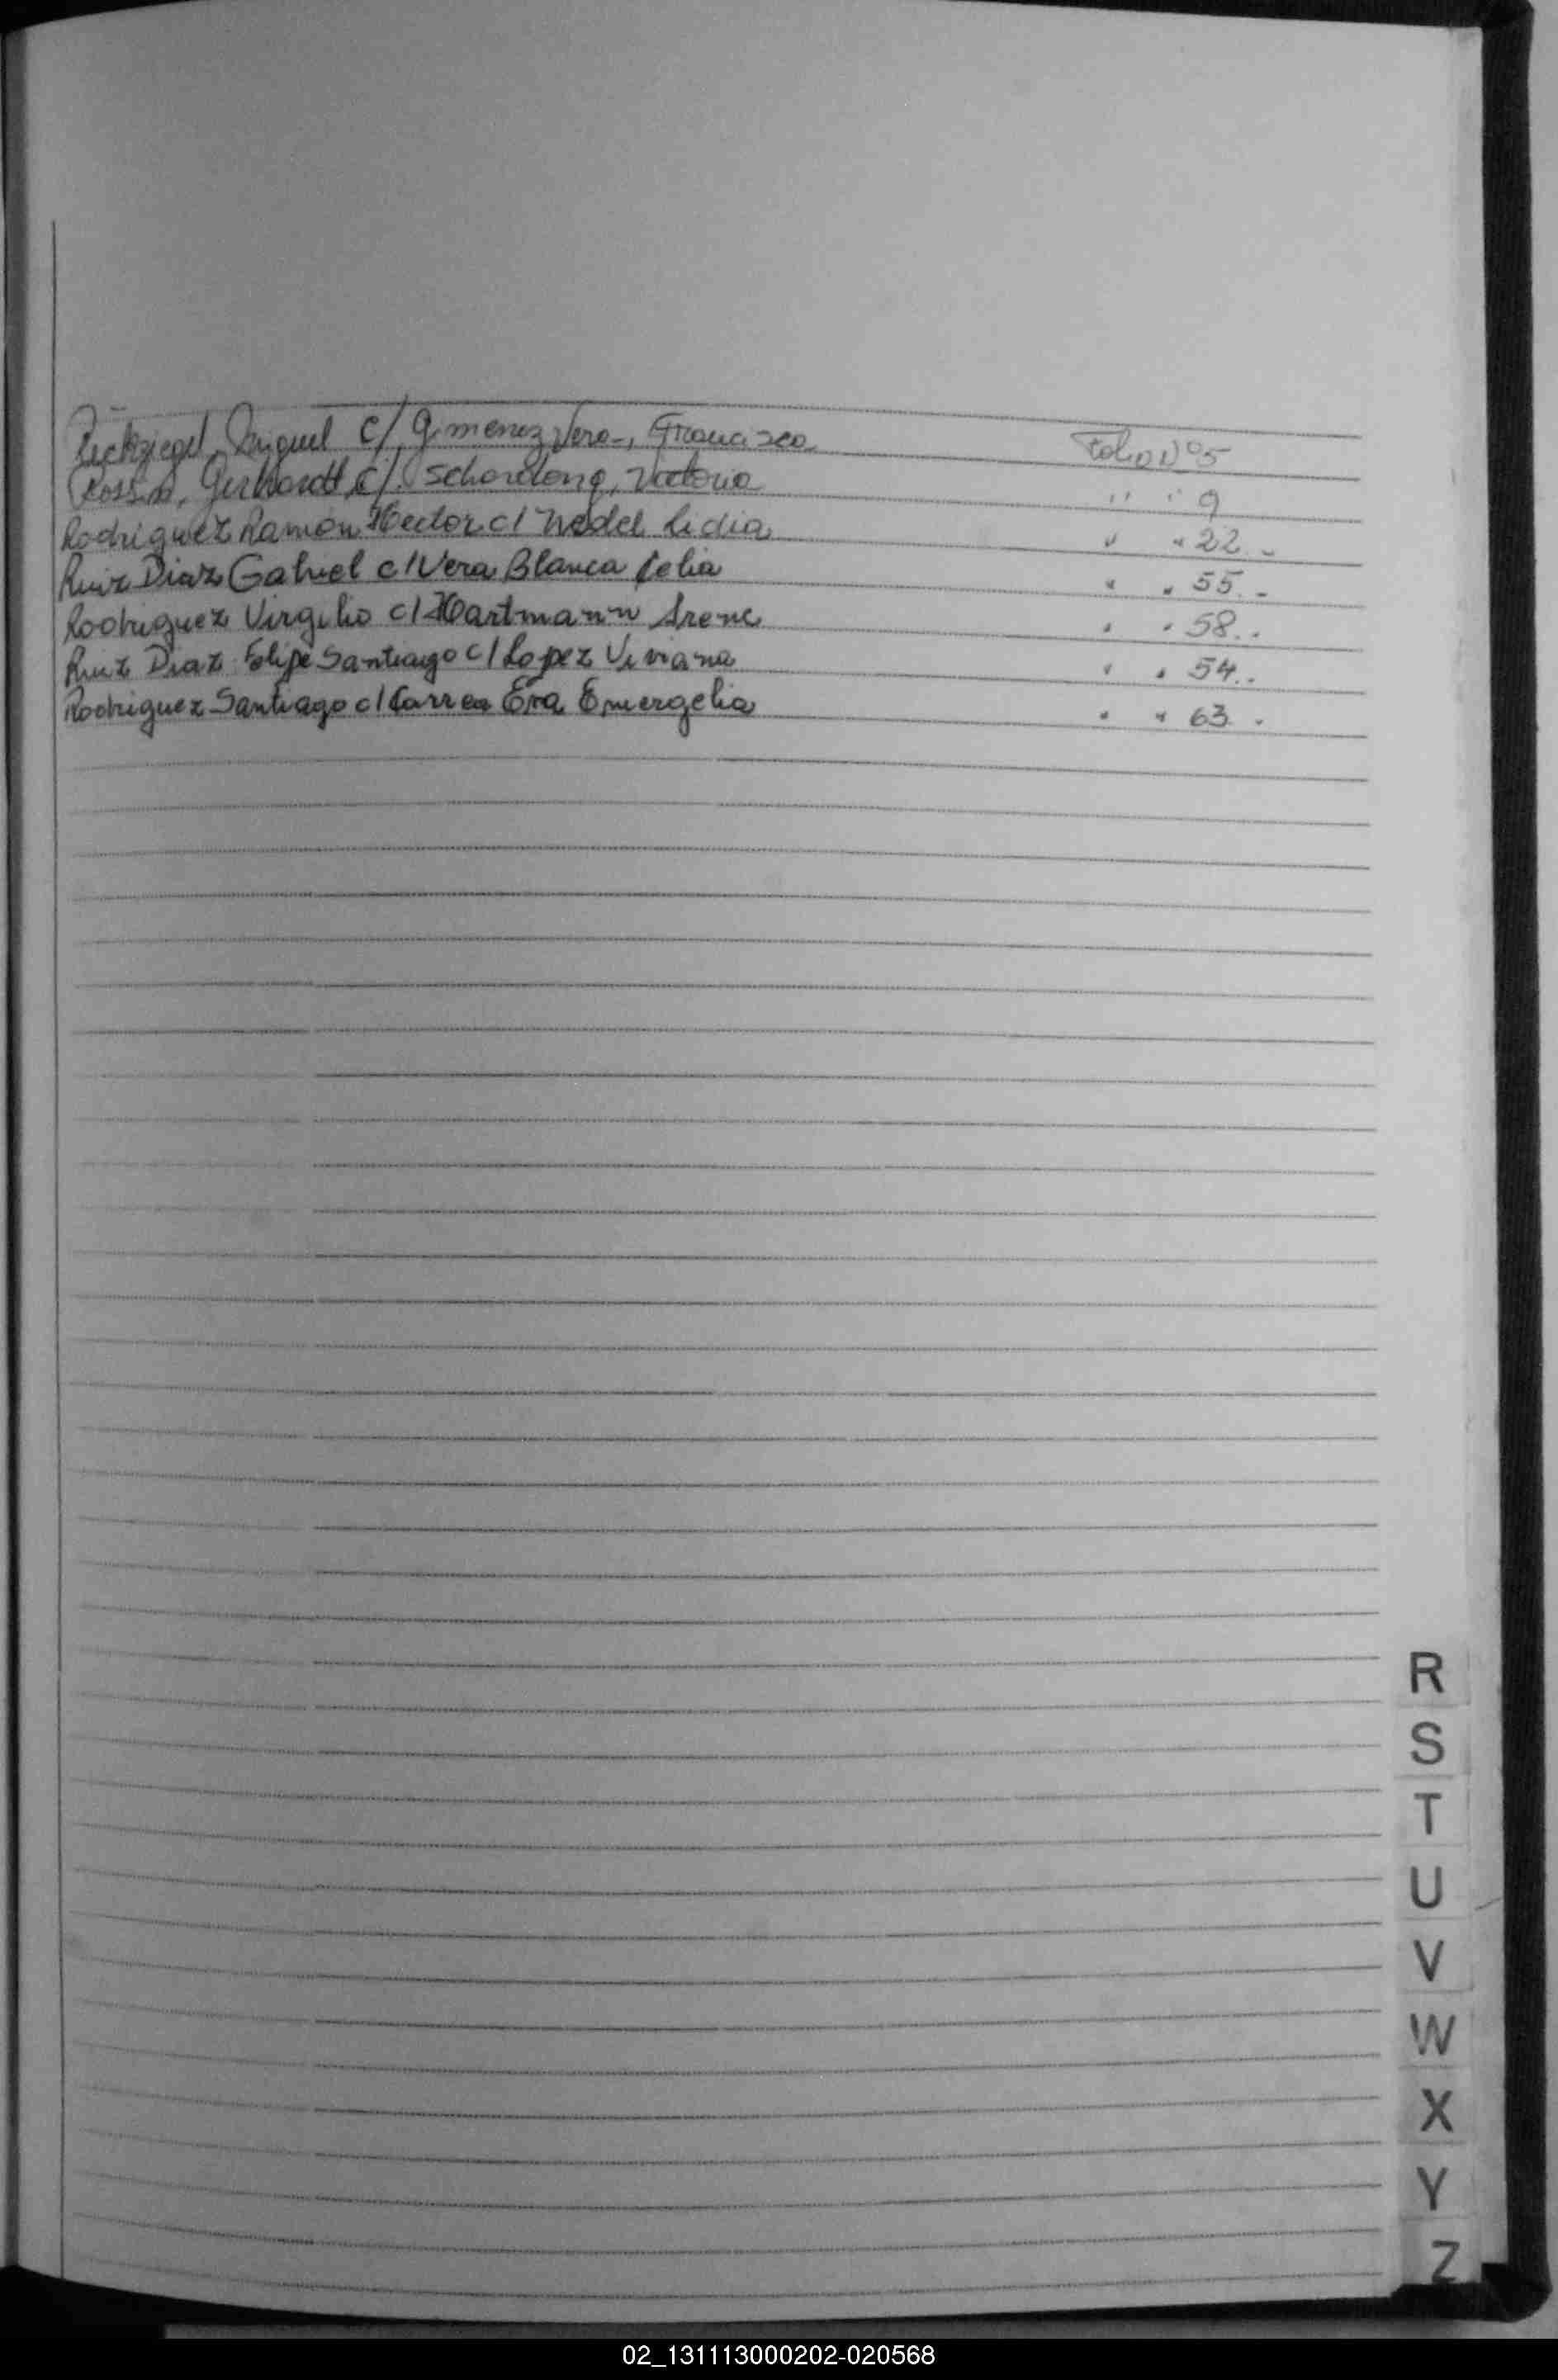 Reckziegel, Miguel c/ Gimenez Vera-, Francisca Folio Nº 5
Rossin, Gerhardt c/. Schardong, Victoria " " 9
Rodriguez Ramón Hector c/ Nedel Lidia " " 22.-
Ruiz Diaz Gabriel c/ Vera Blanca Celia " " 55.-
Rodriguez Virgilio c/ Hartmann Irene " " 58.-
Ruiz Diaz Felipe Santiago c/ Lopez Viviana " " 54.-
Rodriguez Santiago c/ Correa Eva Emergelia " " 63.-
R
S
T
U
V
W
X
Y
Z
02_131113000202-020568